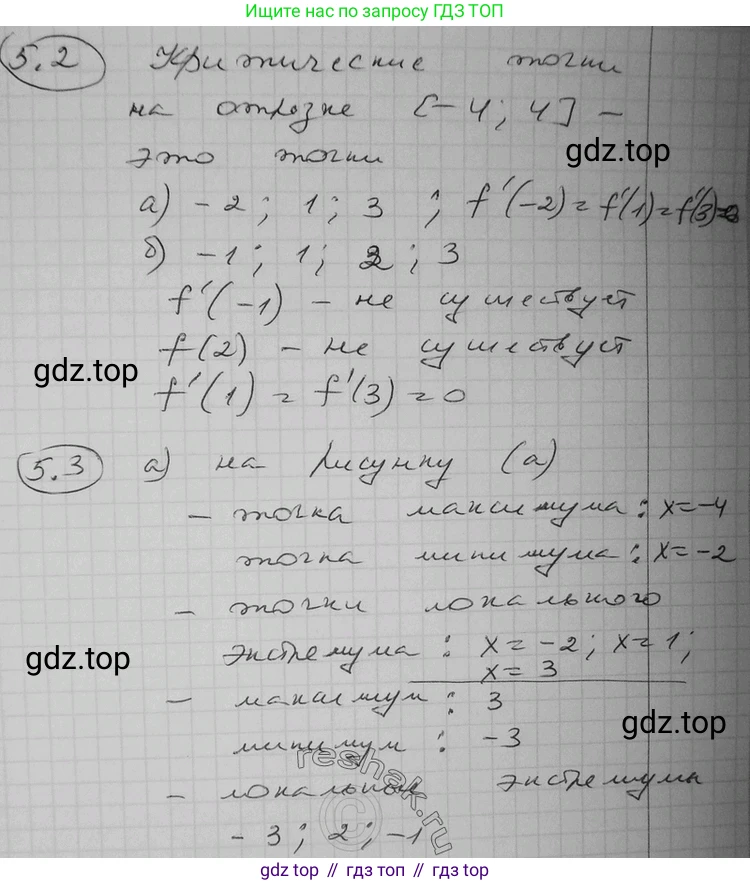 Ищите нас по запросу ГДЗ ТОП
5.2 Критические точки
на отрезке [-4; 4] –
gdz.top
это точки
а) -2; 1; 3; f'(-2) = f'(1) = f'(3) = 0
б) -1; 1; 2; 3
f'(-1) – не существует
f(2) – не существует
gdz.top
f'(1) = f'(3) = 0
5.3 а) на рисунку (а)
– точка максимума: x = -4
точка минимума: x = -2
– точки локального
gdz.top
экстремума: x = -2; x = 1;
x = 3
– максимум: 3
gdz.top
минимум: -3
reshak.ru
©
– локальные экстремумы
-3; 2; -1
gdz.top // гдз топ // gdz.top